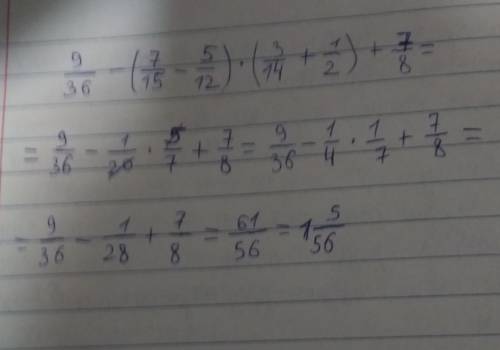 9/36 - (7/15 - 5/12) · (3/14 + 1/2) + 7/8 =
= 9/36 - 1/20 · 5/7 + 7/8 = 9/36 - 1/4 · 1/7 + 7/8 =
= 9/36 - 1/28 + 7/8 = 61/56 = 1 5/56